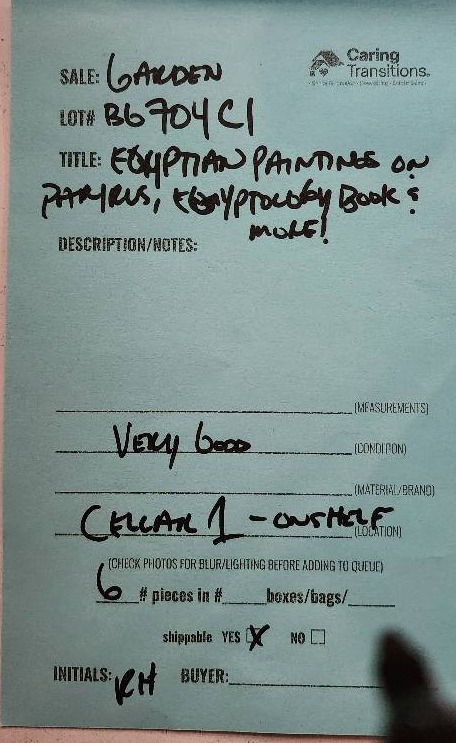 Caring
Transitions
SALE: GARDEN
LOT# B6704C1
TITLE: EGYPTIAN PAINTINGS ON
PAPYRUS, EGYPTOLOGY BOOK &
MORE!
DESCRIPTION/NOTES:
(MEASUREMENTS)
VERY GOOD (CONDITION)
(MATERIAL/BRAND)
CELLAR 1 - ON SHELF (LOCATION)
(CHECK PHOTOS FOR BLUR/LIGHTING BEFORE ADDING TO QUEUE)
6 # pieces in # boxes/bags/
shippable YES X NO
INITIALS: RH BUYER: